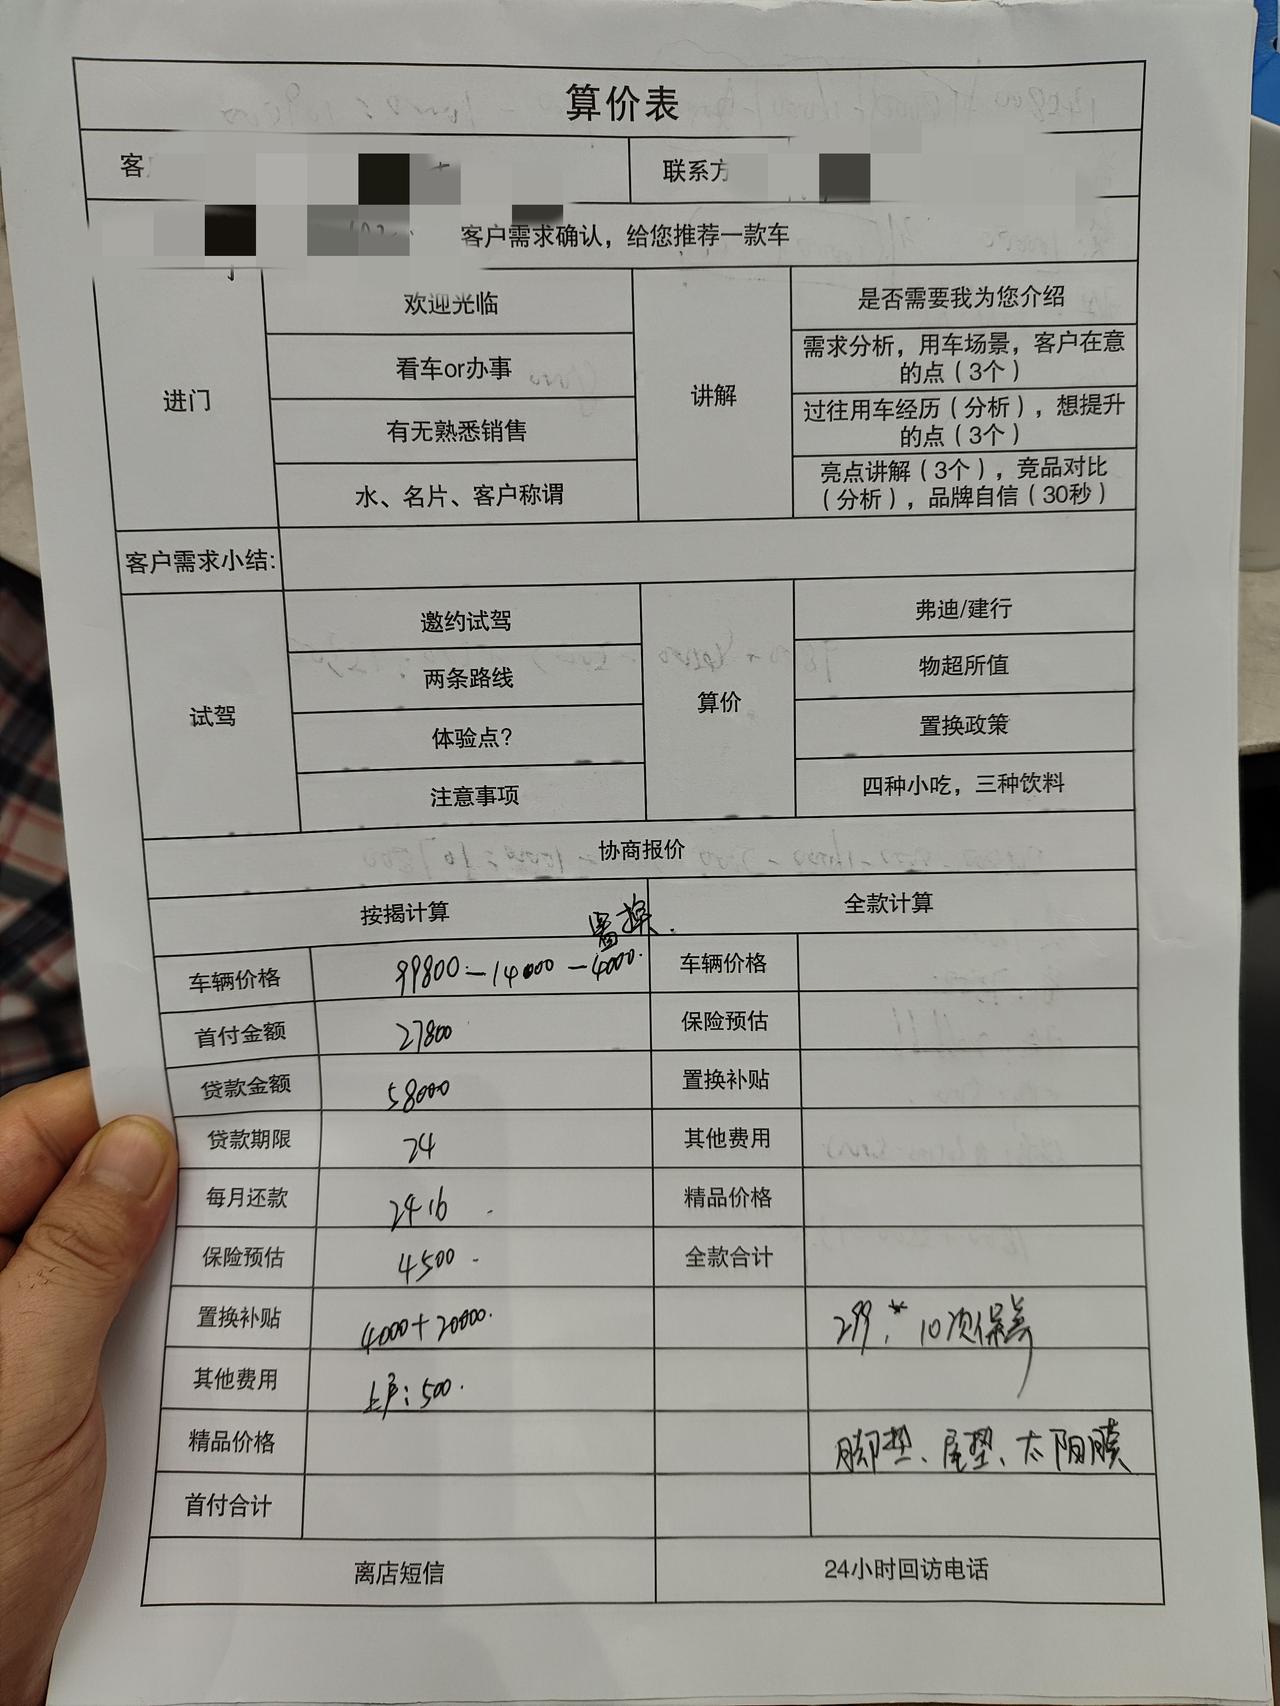 算价表
客
联系方
客户需求确认，给您推荐一款车
进门
欢迎光临
看车or办事
有无熟悉销售
水、名片、客户称谓
讲解
是否需要我为您介绍
需求分析，用车场景，客户在意
的点（3个）
过往用车经历（分析），想提升
的点（3个）
亮点讲解（3个），竞品对比
（分析），品牌自信（30秒）
客户需求小结:
试驾
邀约试驾
两条路线
体验点?
注意事项
算价
弗迪/建行
物超所值
置换政策
四种小吃，三种饮料
协商报价
按揭计算
置换.
全款计算
车辆价格
99800-14000-4000.
车辆价格
首付金额
27800
保险预估
贷款金额
58000
置换补贴
贷款期限
24
其他费用
每月还款
2416
精品价格
保险预估
4500
全款合计
置换补贴
4000+20000.
299.*10次保养
其他费用
上户:500.
精品价格
脚垫、尾垫、太阳膜
首付合计
离店短信
24小时回访电话